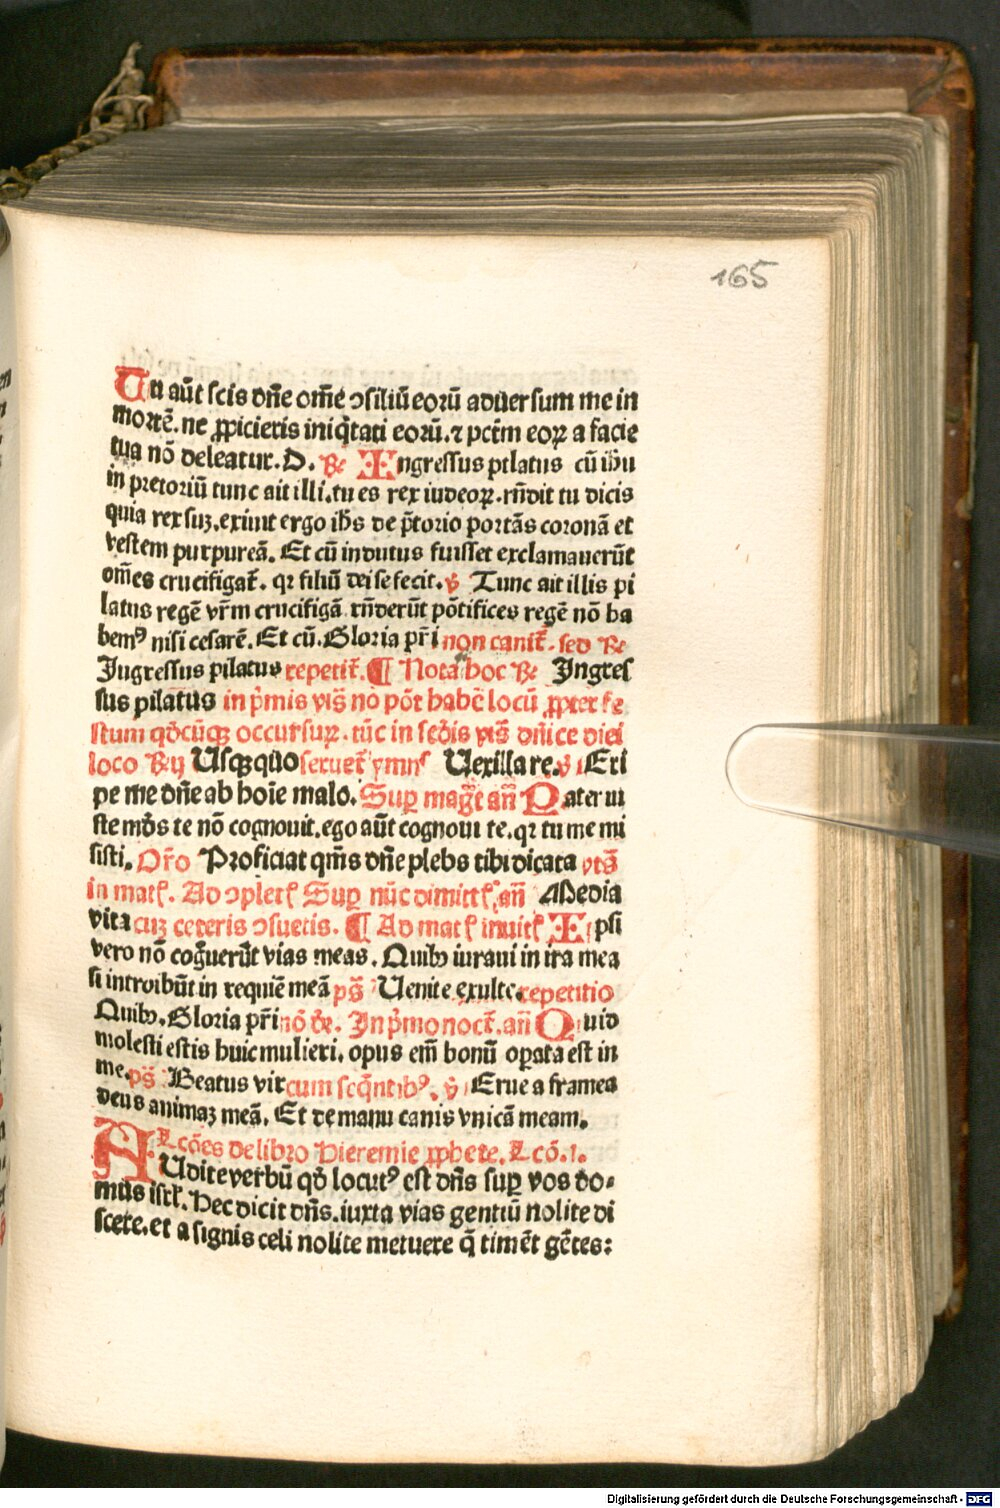 165
Tu aūt scis dn̄e om̄e ↄsiliū eorū aduersum me in
mortē. ne ꝓpicieris iniq̄tati eorū. ⁊ pctm̄ eoꝝ a facie
tua nō deleatur. D. ℞ Ingressus pilatus cū ih̄u
in pretoriū tunc ait illi. tu es rex iudeoꝝ. rn̄dit tu dicis
quia rex suꝫ. exiuit ergo ih̄s de p̄torio portās coronā et
vestem purpureā. Et cū indutus fuisset exclamauerūt
om̄es crucifigat̄. qꝛ filiū dei se fecit. ℣ Tunc ait illis pi
latus regē vr̄m crucifigā rn̄derūt pōtifices regē nō ha
bemꝰ nisi cesarē. Et cū. Gloria pr̄i non canit̄. sed ℞
Ingressus pilatus repetit̄. ¶ Nota hoc ℞ Ingres
sus pilatus in p̄mis vis̄ nō pōt habē locū ꝓpter fe
stum qd̄cūqꝫ occursuꝝ. tūc in sed̄is vis̄ dn̄ice diei
loco ℞ij Usqꝫquo seruet̄ ymnꝰ Uexilla re. ℣ Eri
pe me dn̄e ab hoīe malo. Suꝑ maḡt an̄ Pater iu
ste mūdꝰ te nō cognouit. ego aūt cognoui te. qꝛ tu me mi
sisti. Or̄o Proficiat qm̄s dn̄e plebs tibi dicata vts̄
in matꝭ. Ad ↄpletꝭ Suꝑ nūc dimittꝭ. an̄ Media
vita cuꝫ ceteris ↄsuetis. ¶ Ad matꝭ inuitꝭ Ipsi
vero nō coḡuerūt vias meas. Quibꝰ iuraui in ira mea
si introibūt in requiē meā ps̄ Uenite exulte. repetitio
Quibꝰ. Gloria pr̄i nō dr̄. In p̄mo noct̄. an̄ Quid
molesti estis huic mulieri. opus em̄ bonū oꝑata est in
me. ps̄ Beatus vir cum seq̄ntibꝰ. ℣ Erue a framea
deus animaꝫ meā. Et de manu canis vnicā meam.
Lcōes de libro Hieremie ꝓphete. Lcō. i.
AUdite verbū qd̄ locutꝰ est dn̄s suꝑ vos do⸗
mus isrl̄. Hec dicit dn̄s. iuxta vias gentiū nolite di
scere. et a signis celi nolite metuere q̄ timēt gētes:
Digitalisierung gefördert durch die Deutsche Forschungsgemeinschaft - DFG